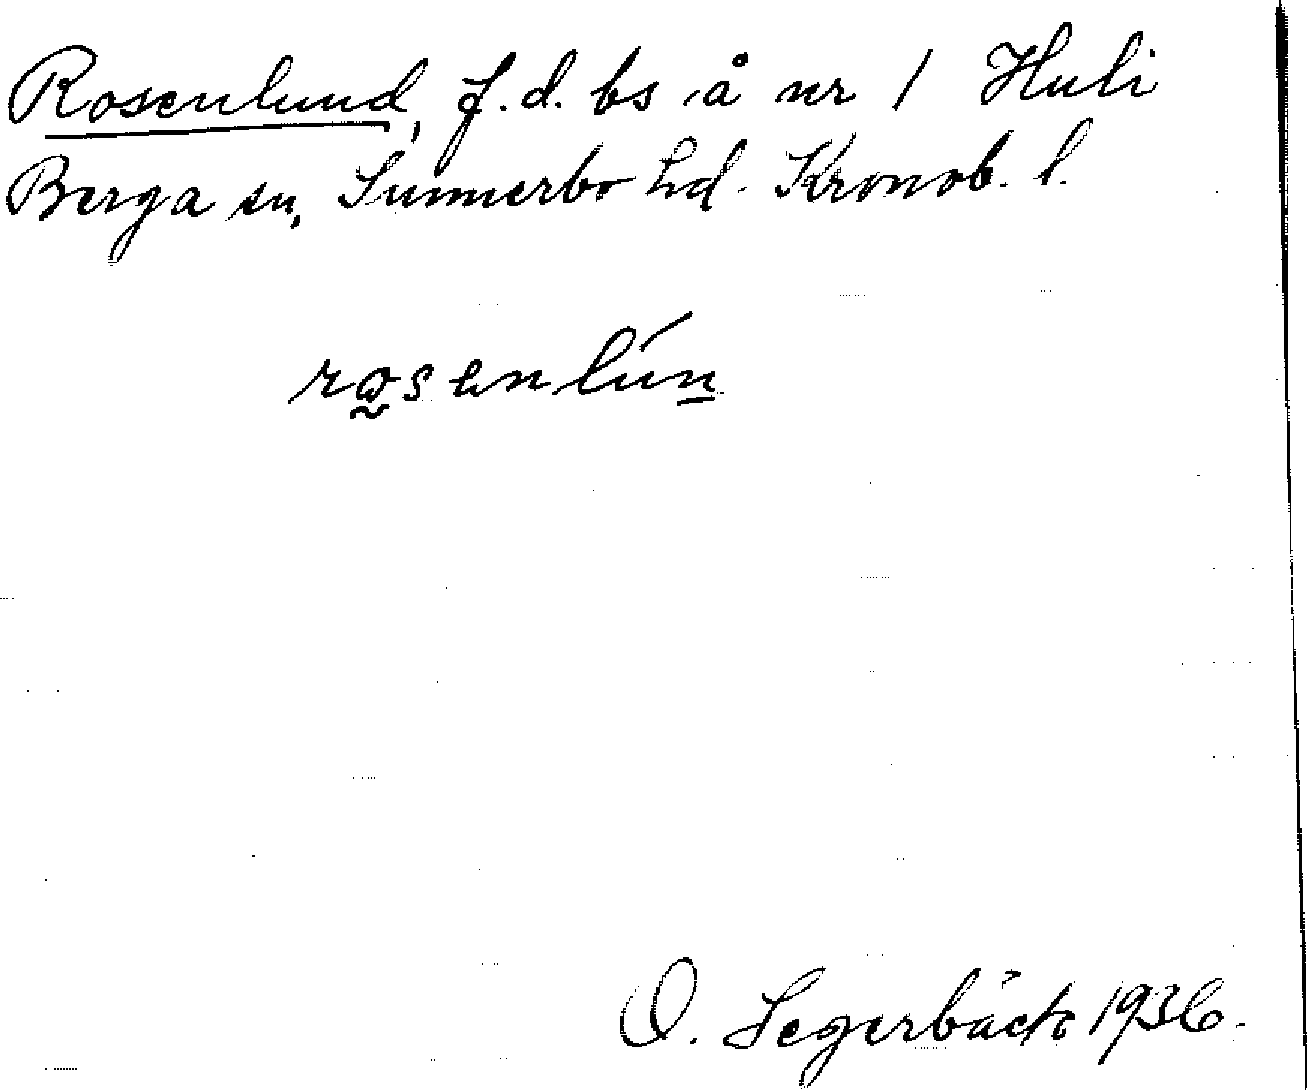 Rosenlund, f.d. bs å nr 1 Huli
Berga sn, Sunnerbo hd. Kronob. l.
rosenlún
O. Segerbäck 1936.